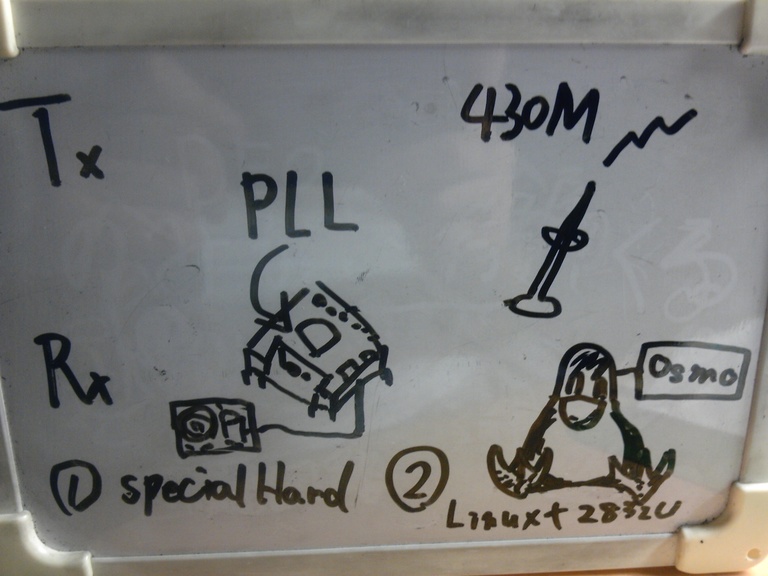 Tx
430M
PLL
Rx
Osmo
① special Hard
② Linux + 2832U